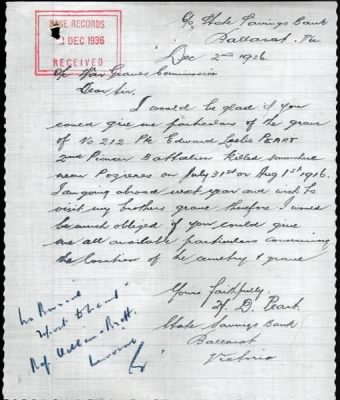 BASE RECORDS
DEC 1936
RECEIVED
C/o State Savings Bank
Ballarat. Vic
Dec 2nd 1936.
War Graves Commission
Dear Sir.
I would be glad if you
could give me particulars of the grave
of No 212 Pte Edward Leslie PEART
2nd Pioneer Battalion killed somewhere
near Pozieres on July 31st or Aug 1st 1916.
I am going abroad next year and wish to
visit my brothers grave therefore I would
be much obliged if you could give
me all available particulars concerning
the location of the cemetery & grave
Yours faithfully.
D. Peart.
State Savings Bank
Ballarat
Victoria